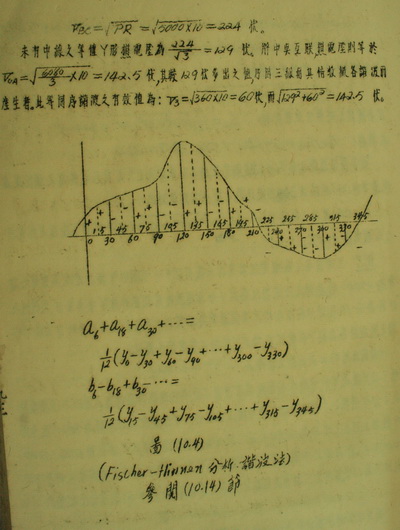 V_BC = √PR = √5000×10 = 224 伏.
未有中線之等值Y形相電壓為 224/√3 = 129 伏.
V_OA = √(6080/3 ×10) = 142.5 伏,其較 129 伏多出之
產生者.此等同序諧波之有效值為: V_3 = √360×10 = 60伏,而√129²+60² = 142.5 伏.
0 15 30 45 60 75 90 105 120 135 150 165 180 195 210 225 240 255 270 285 300 315 330 345
a_6 + a_18 + a_30 + ⋯ =
1/12 (y_0 − y_30 + y_60 − y_90 + ⋯ + y_300 − y_330)
b_6 − b_18 + b_30 − ⋯ =
1/12 (y_15 − y_45 + y_75 − y_105 + ⋯ + y_315 − y_345)
圖 (10.4)
(Fischer-Hinnen 分析諧波法)
參閱 (10.14) 節